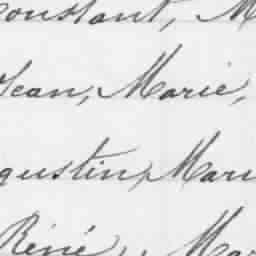 onstant, M
Jean, Marie,
gustin, Mari
Réné, Mar